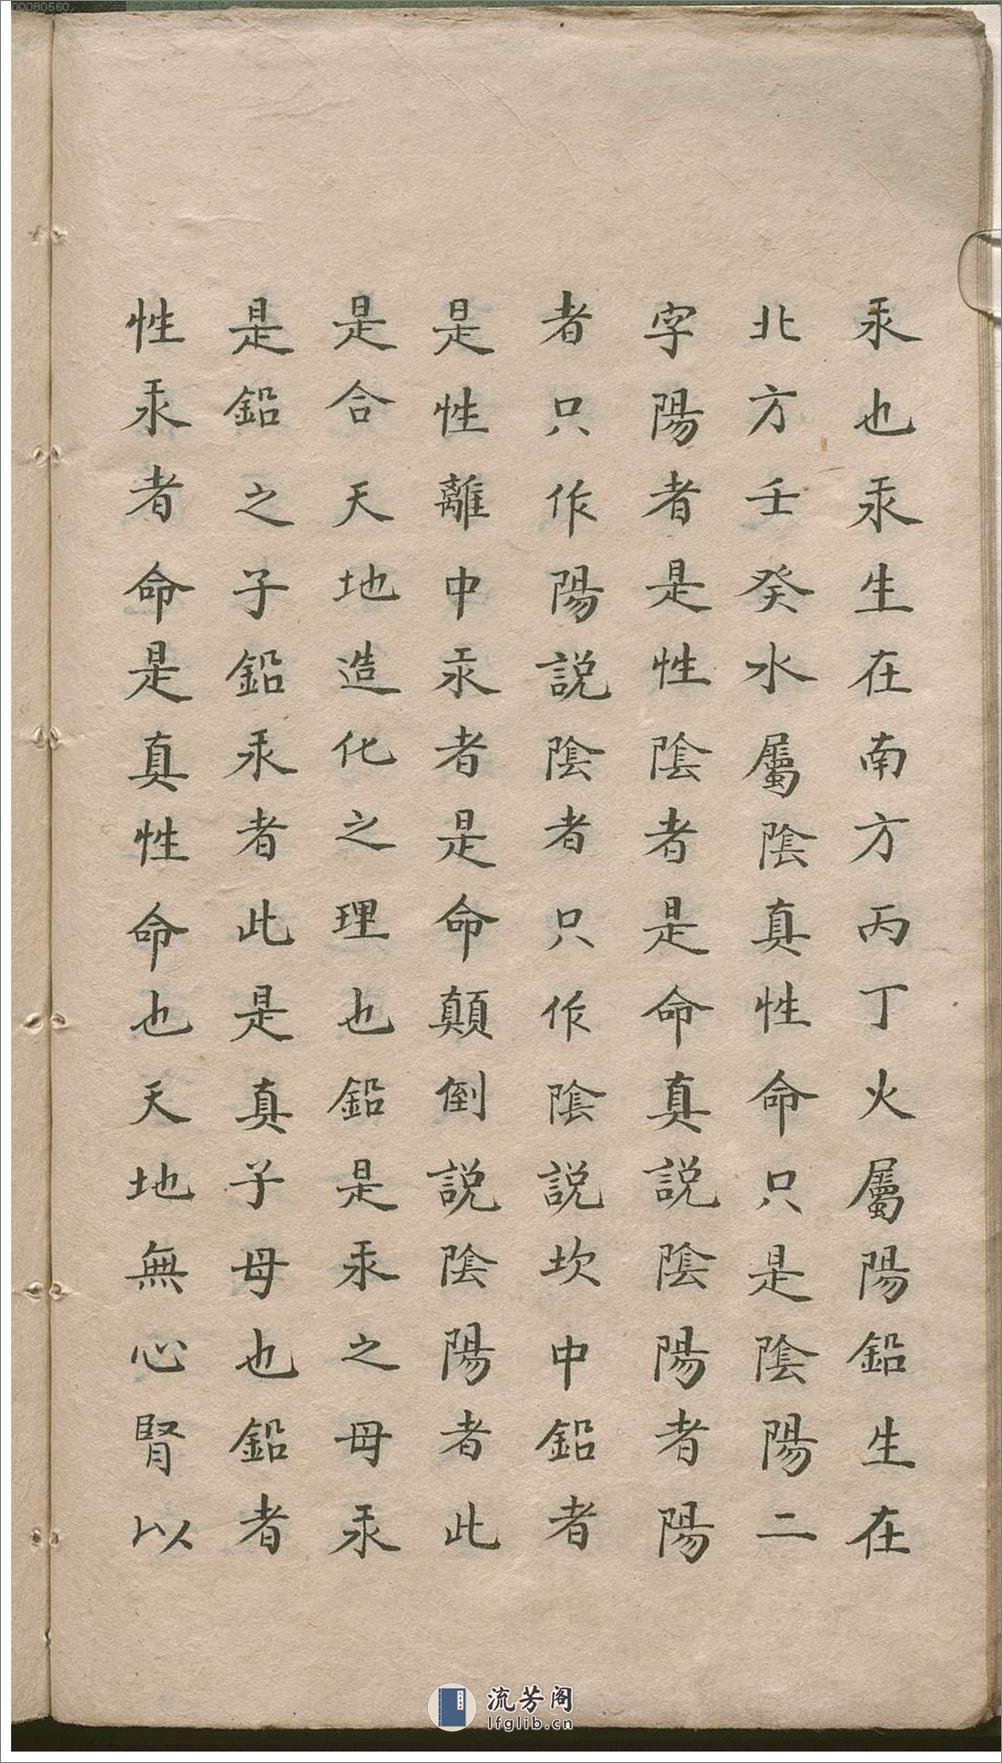 汞也汞生在南方丙丁火屬陽鉛生在
北方壬癸水屬陰真性命只是陰陽二
字陽者是性陰者是命真說陰陽者陽
者只作陽說陰者只作陰說坎中鉛者
是性離中汞者是命顛倒說陰陽者此
是合天地造化之理也鉛是汞之母汞
是鉛之子鉛汞者此是真子母也鉛者
性汞者命是真性命也天地無心腎以
00080560
流芳阁
lfglib.cn